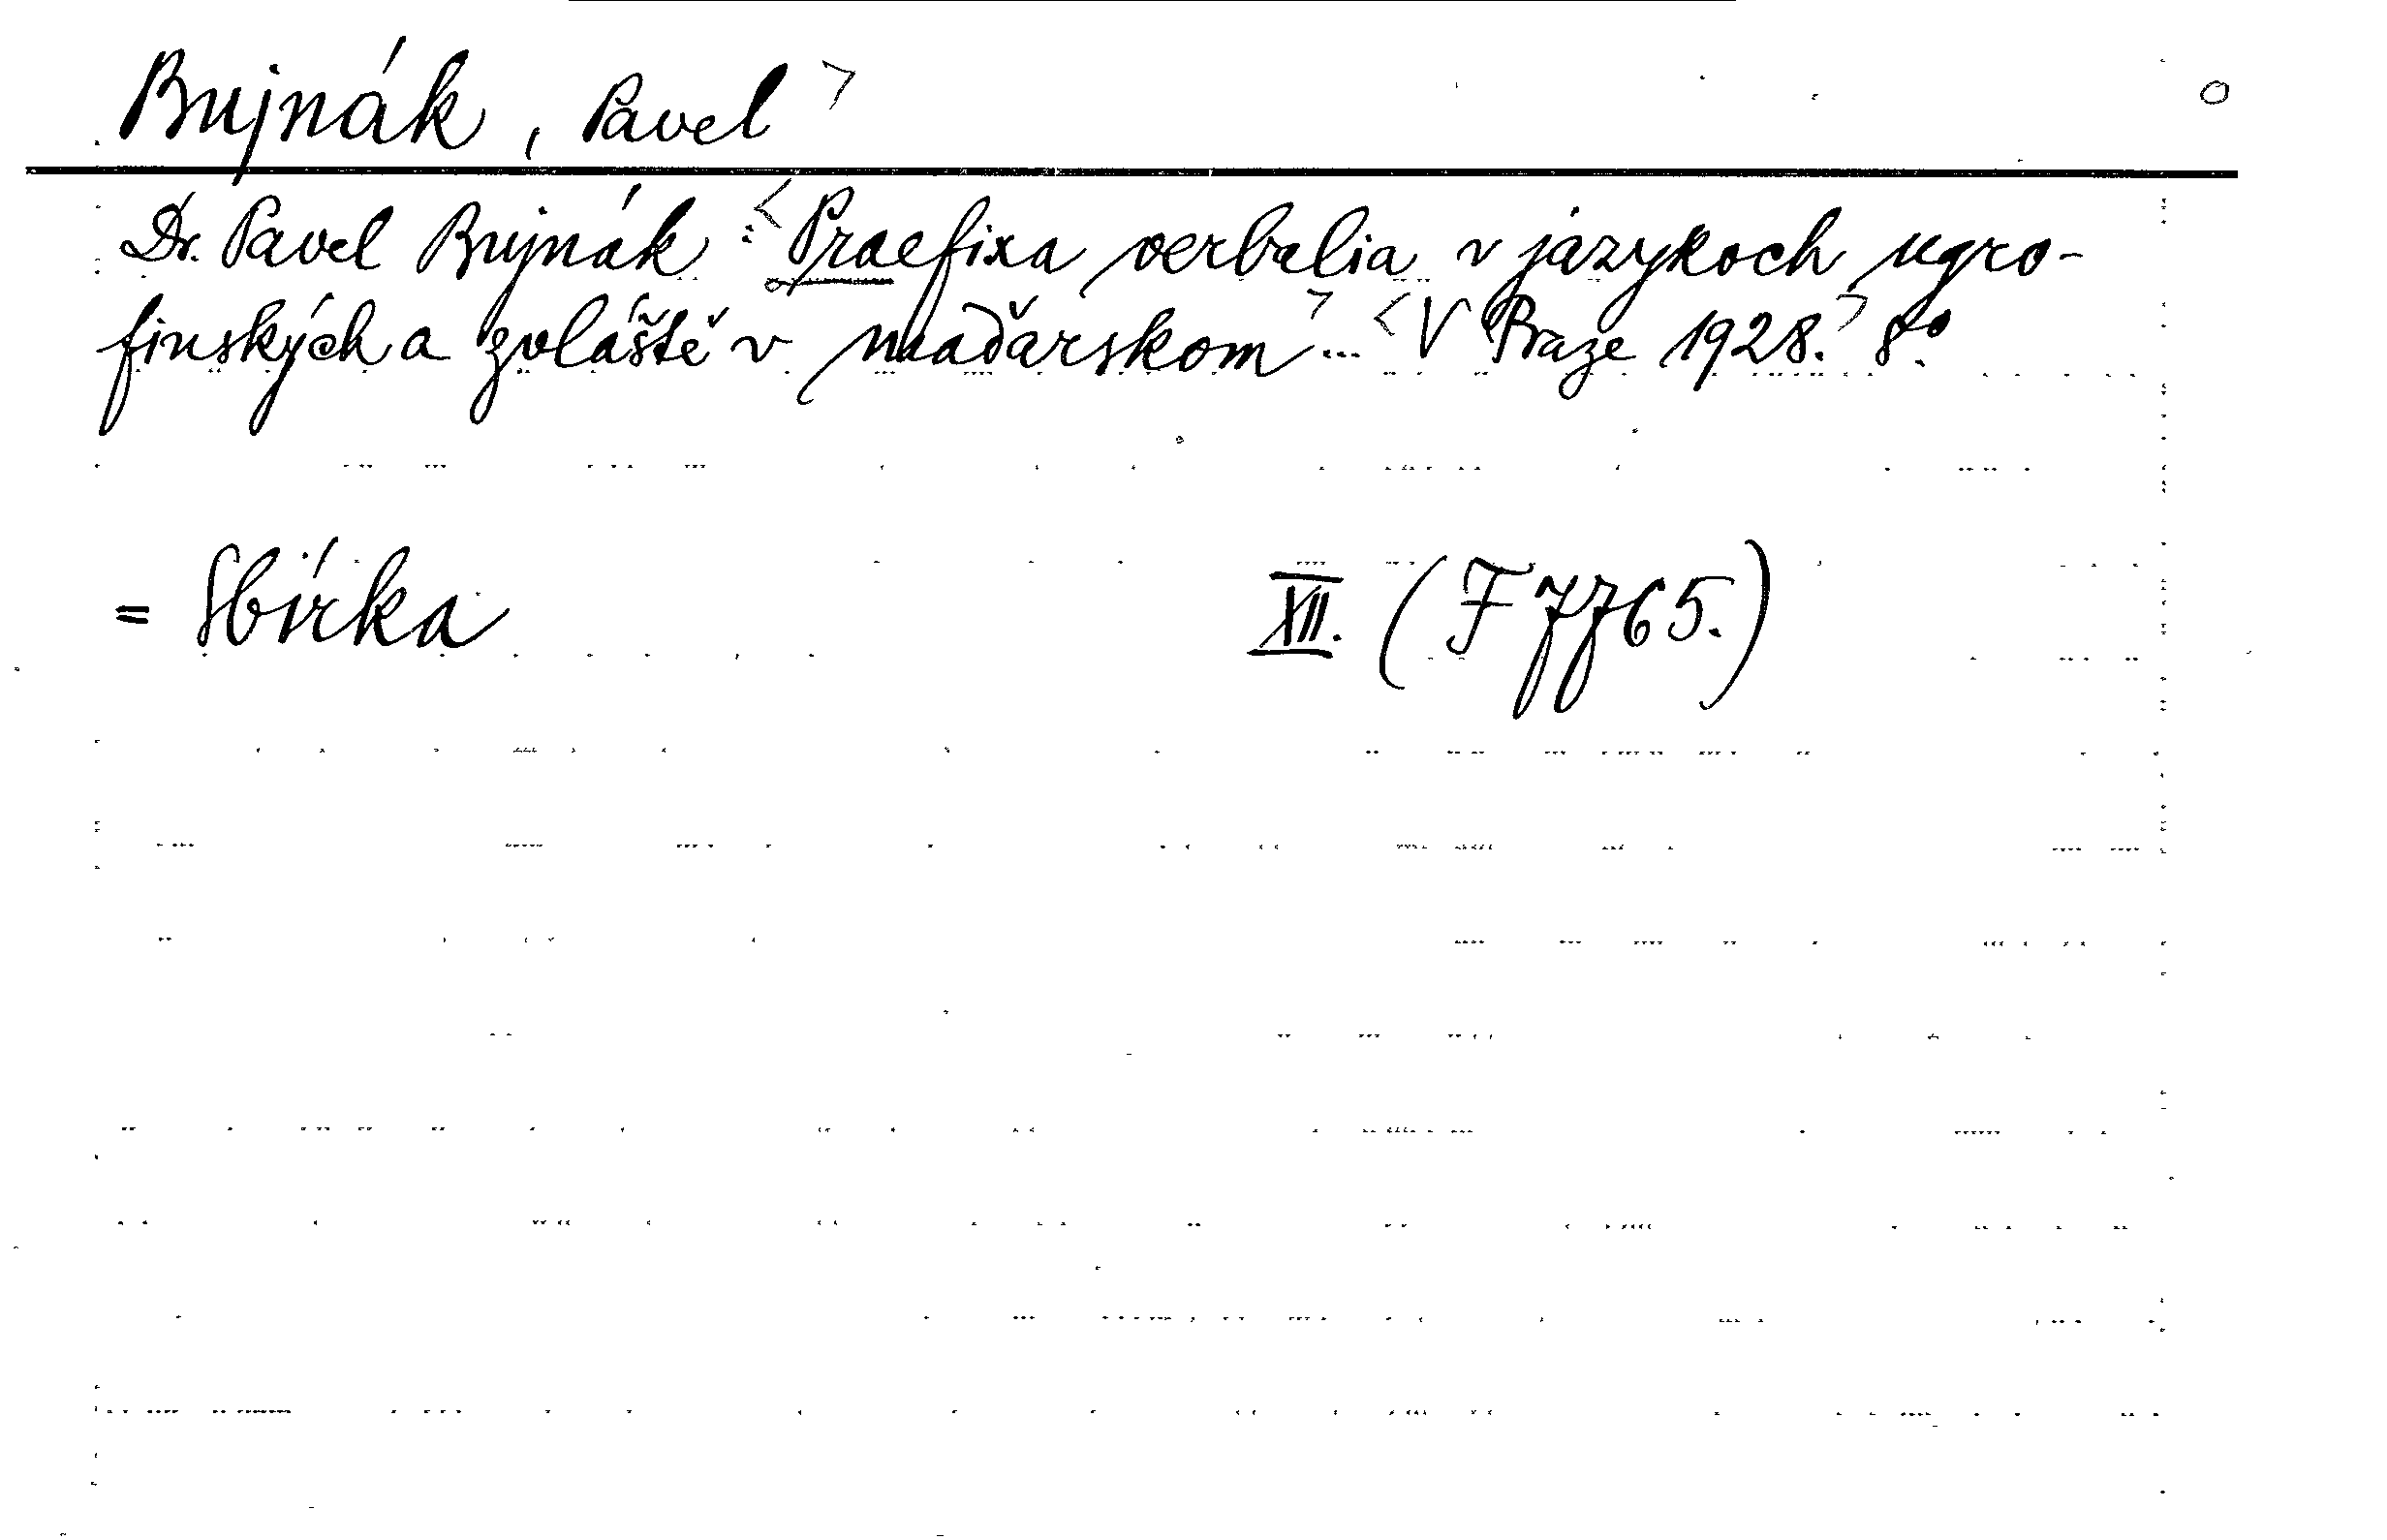 Bujnák, Pavel >
Dr. Pavel Bujnák: < Praefixa verbalia v jazykoch ugro-
finských a zvláště v maďarskom > ... < V Praze 1928. > 8°.
= Sbírka XII. (F 7765.)